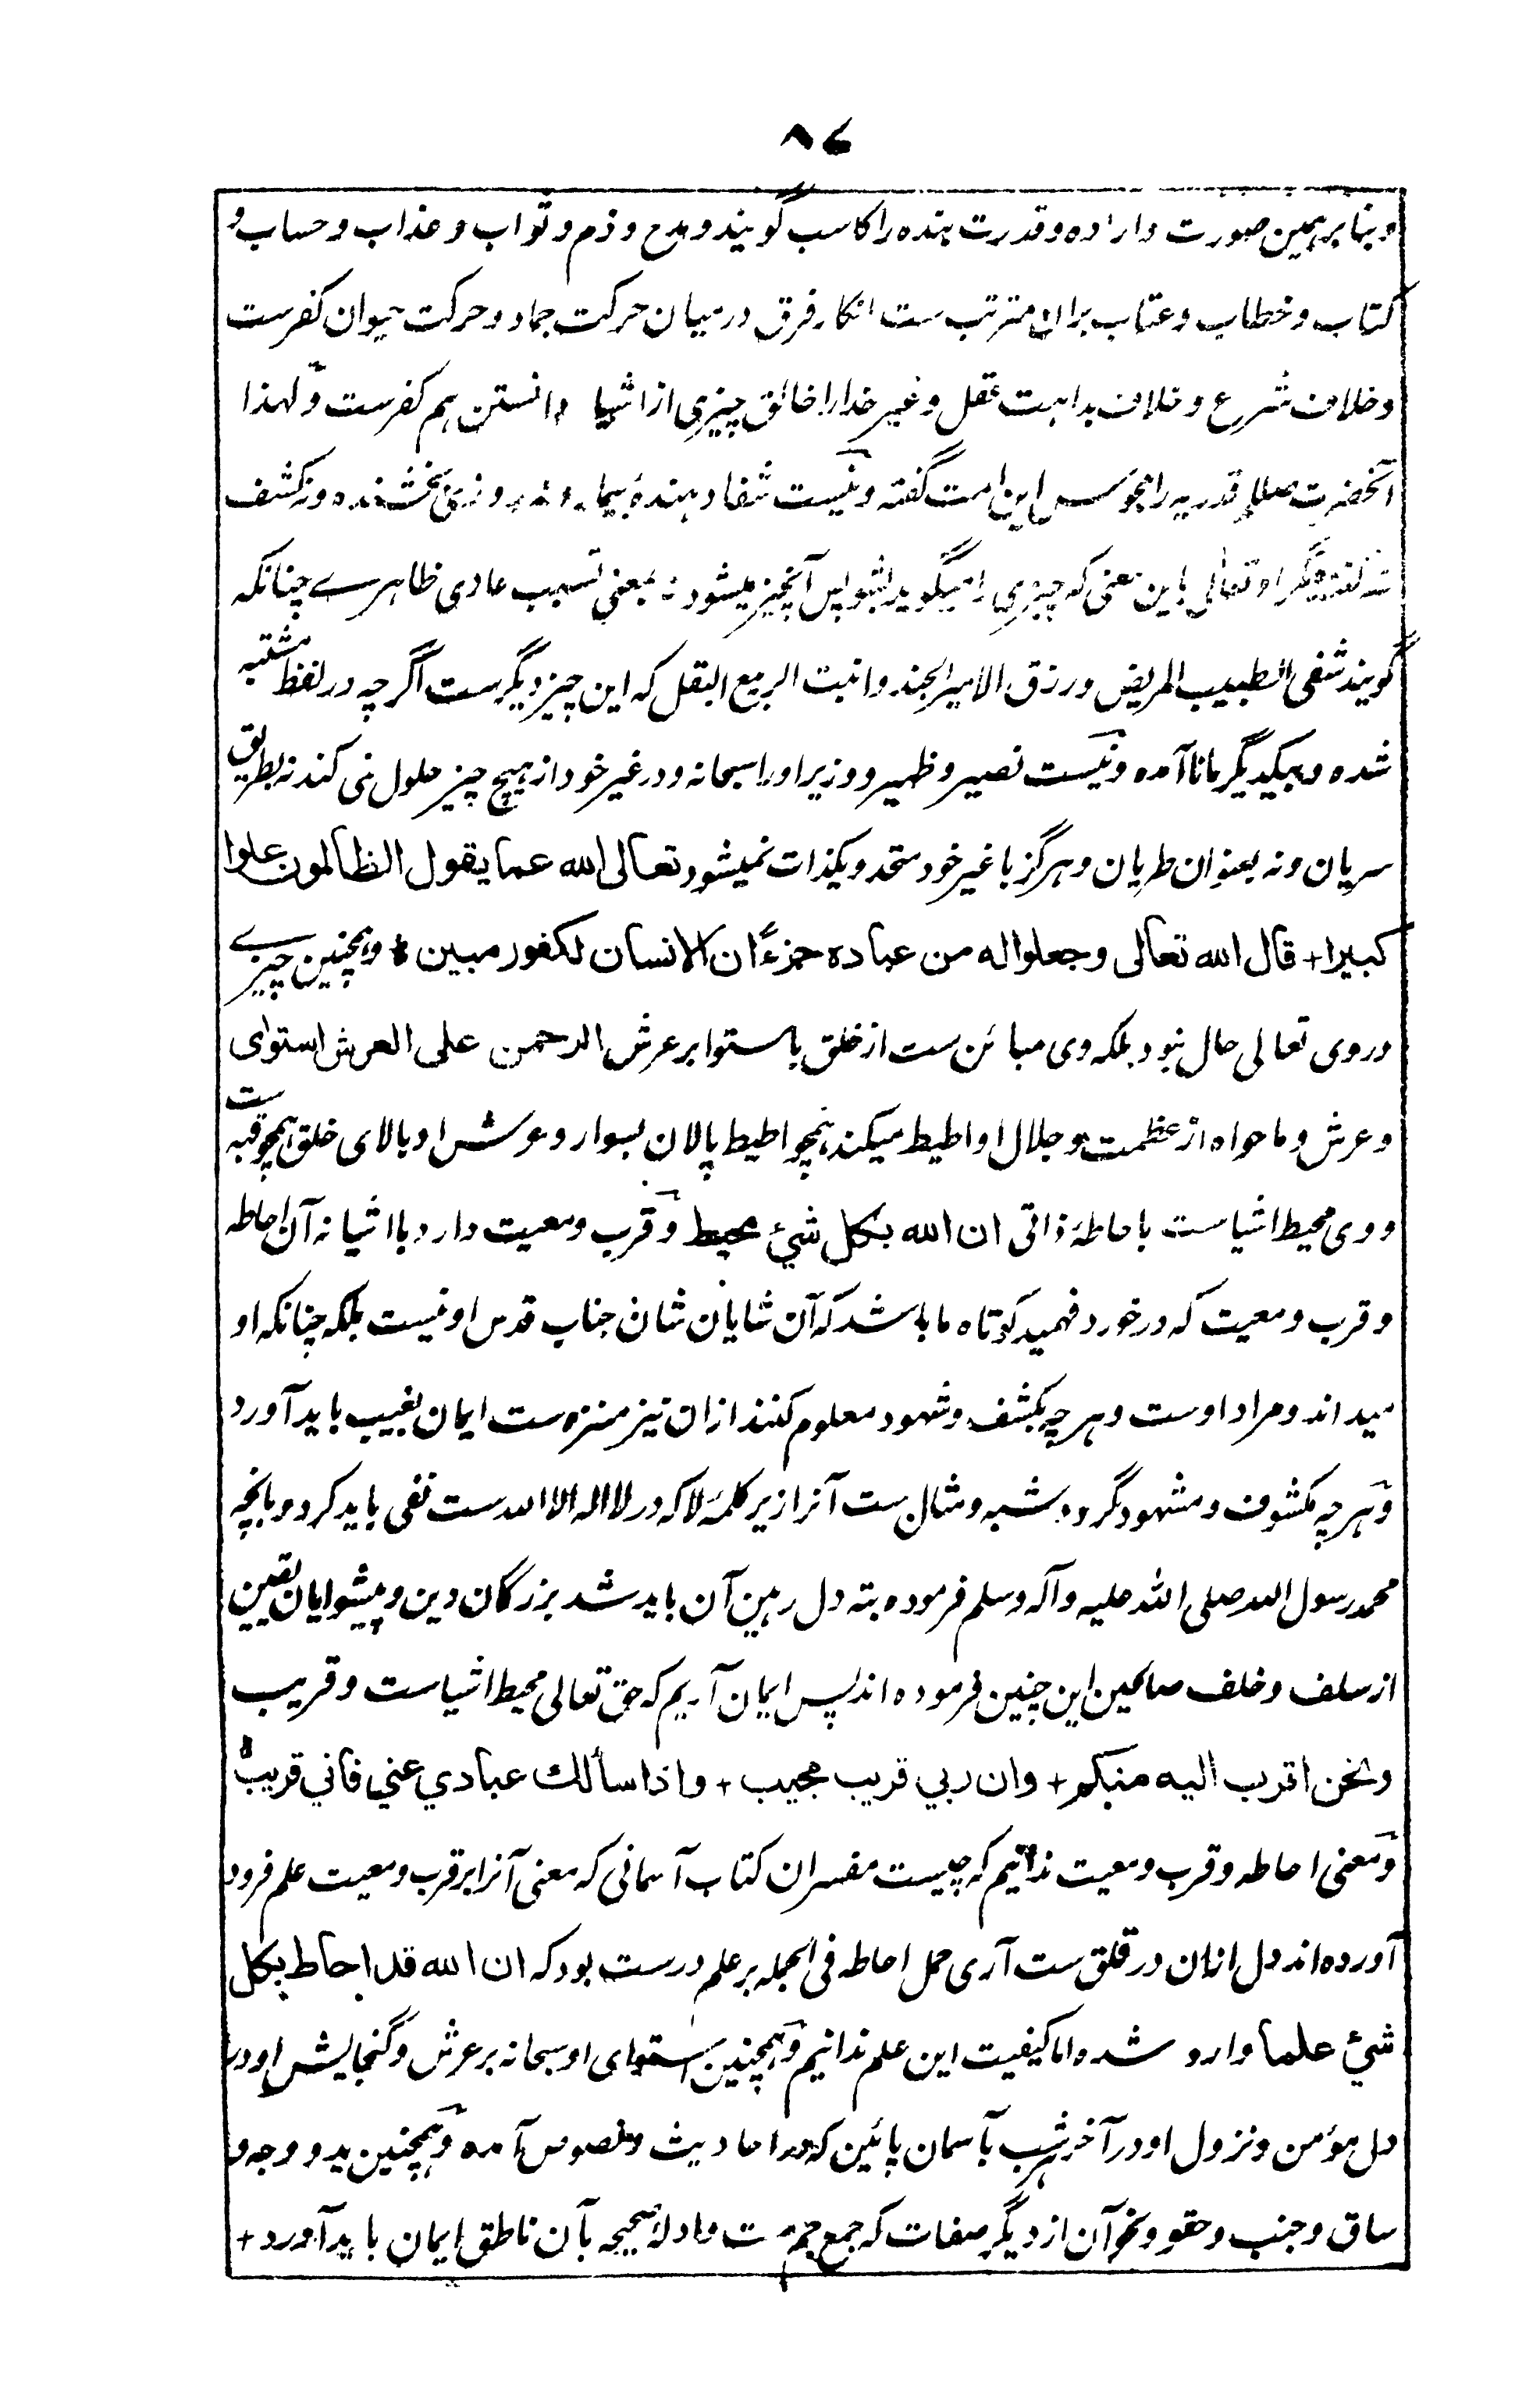 ۸۶
و بنا بر همین صورت و اراده و قدرت بنده را کاسب گویند و مدح و ذم و ثواب و عذاب و حساب و
کتاب و خطاب و عتاب بران مترتب ست انکار فرق درمیان حرکت جماد و حرکت حیوان کفرست
و خلاف شرع و خلاف بداہت عقل و غیر خدا را خالق چیزی از اشیا دانستن ہم کفرست و لہذا
آنحضرت صللم قدریہ را مجوس این امت گفتہ و نیست شفا دہندۂ بیمار و نہ روزی بخشندہ و نہ کشف
مگر او تعالی باین معنی کہ چیزی را میگوید بشو پس آنچیز میشود نہ بمعنی تسبب عادی ظاہرے چنانکہ
گویند شفی الطبیب المریض و رزق الامیر الجند و انبت الربیع البقل کہ این چیز دیگرست اگرچہ در لفظ مشتبہ
شدہ و بیکدیگر مانا آمدہ و نیست نصیر و ظہیر و وزیر او را سبحانہ و در غیر خود از ہیچ چیز حلول نمی کند نہ بطریق
سریان و نہ بعنوان طریان و ہرگز با غیر خود متحد و یکذات نمیشود تعالی الله عما یقول الظالمون علوا
کبیرا + قال الله تعالی وجعلوا له من عباده جزءًا ان الانسان لکفور مبین + و ہمچنین چیزے
در وی تعالی حال نبود بلکہ وی مبائن ست از خلق باستوا بر عرش الرحمن علی العرش استوی
و عرش و ما حواہ از عظمت و جلال او اطیط میکند ہمچو اطیط پالان بسوار و عرش او بالای خلق ہمچو قبہ ست
و وی محیط اشیاست باحاطۂ ذاتی ان الله بکل شيء محیط و قرب و معیت دارد با اشیا نہ آن احاطہ
و قرب و معیت کہ در خورد فہمید کوتاہ ما باشد کہ آن شایان شان جناب قدس او نیست بلکہ چنانکہ او
میداند و مراد اوست و ہر چہ بکشف و شہود معلوم کنند ازان نیز منزہ ست ایمان بغیب باید آورد
و ہر چہ مکشوف و مشہود گردد شبہ و مثال ست آنرا زیر کلمۂ لا کہ در لا الہ الا اللہ ست نفی باید کرد و بانچہ
محمد رسول اللہ صلی اللہ علیہ وآلہ وسلم فرمودہ بتہ دل رہین آن باید شد بزرگان دین و پیشوایان یقین
از سلف و خلف صالحین این چنین فرمودہ اند پس ایمان آریم کہ حق تعالی محیط اشیاست و قریب
ونحن اقرب الیه منکم + وان ربي قریب مجیب + واذا سألك عبادي عني فاني قریب
و معنی احاطہ و قرب و معیت ندانیم کہ چیست مفسران کتاب آسمانی کہ معنی آنرا بر قرب و معیت علم فرود
آوردہ اند دل ازان در قلق ست آری حمل احاطہ فی الجملہ بر علم درست بود کہ ان الله قد احاط بکل
شيء علما وارد شدہ اما کیفیت این علم ندانیم و ہمچنین استوای او سبحانہ بر عرش و گنجایش او در
دل مؤمن و نزول او در آخر شب بآسمان پائین کہ در احادیث و نصوص آمدہ و ہمچنین ید و وجہ و
ساق و جنب و حقو و نحو آن از دیگر صفات کہ جمع و ادلۂ صحیحہ بآن ناطق ایمان باید آورد +